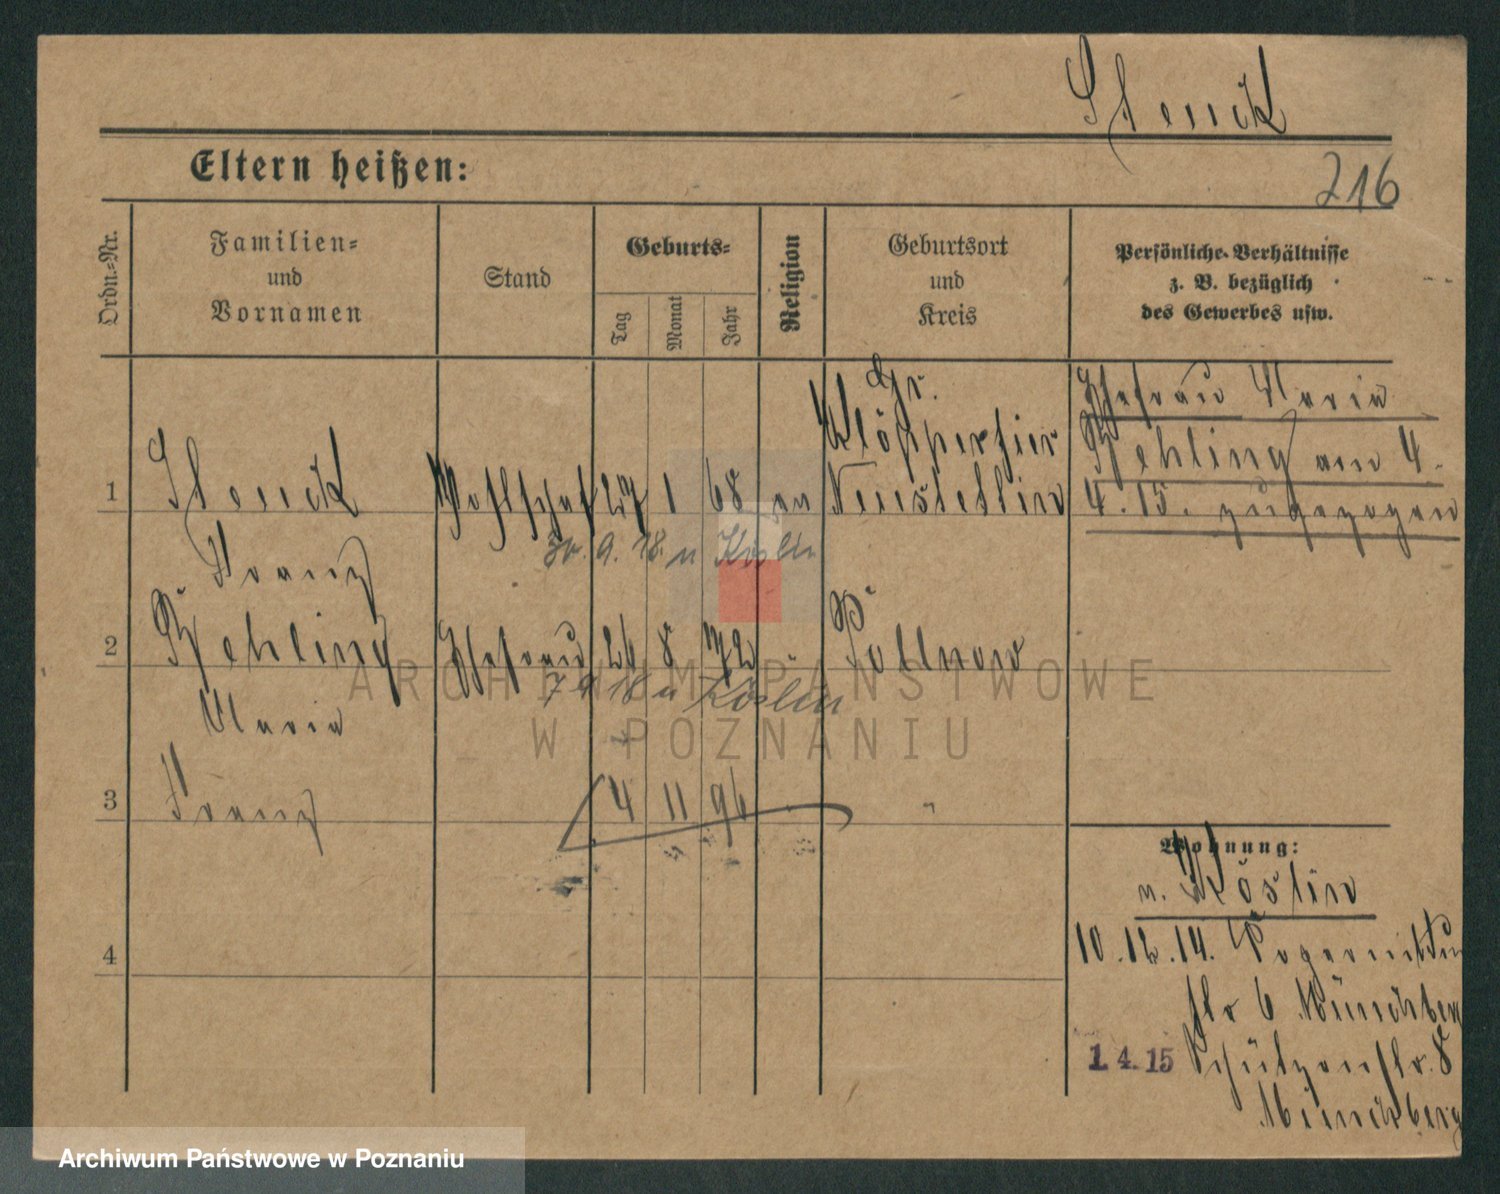 Stenck
Eltern heißen:
216
Ordn.=Nr.
Familien=
und
Vornamen
Stand
Geburts=
Tag
Monat
Jahr
Religion
Geburtsort
und
Kreis
Persönliche Verhältnisse
z. B. bezüglich
des Gewerbes usw.
Gr.
Ehefrau Maria
Rehling am 4.
4. 15. zugezogen
1 Stenck 27 1 68 ev Neustettin
30. 9. 18. n Köslin
Franz
2 Rehling Ehefrau 26 8 72 " Pollnow
7 9 18 n Köslin
Maria
3 Franz 4 11 96 "
Wohnung:
n. Köslin
4
10.12.14.
str 6 Münchberg
1. 4. 15 Schützenstr. 8
Müncheberg
ARCHIWUM PAŃSTWOWE
W POZNANIU
Archiwum Państwowe w Poznaniu